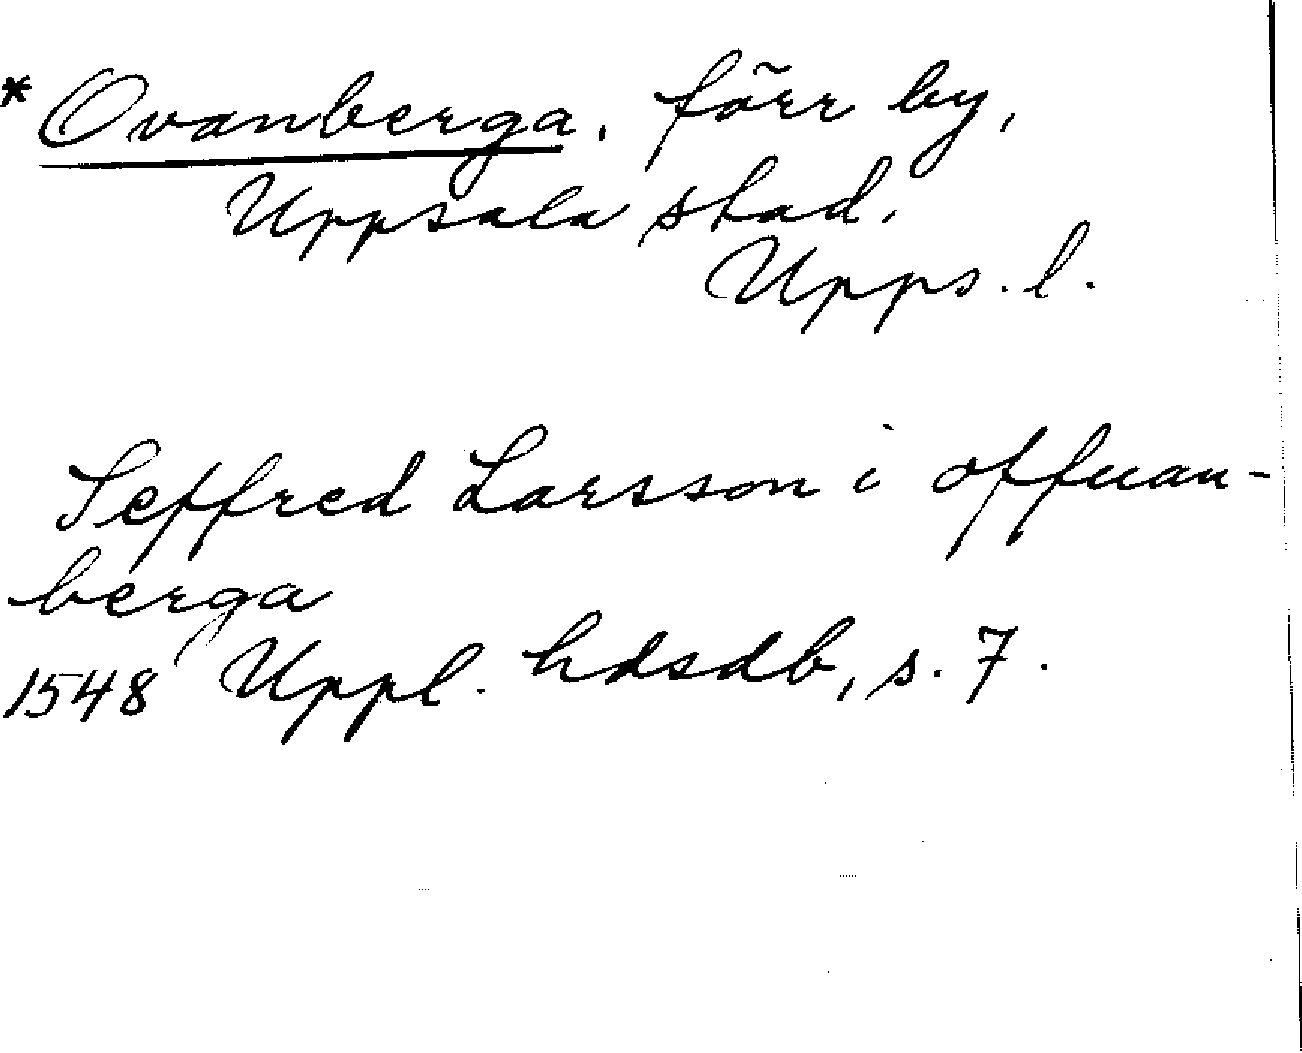 * Ovanberga. förr by,
Uppsala stad.
Upps. l.
Seffred Larsson i offuan-
berga
1548 Uppl. hdsdb, s. 7.